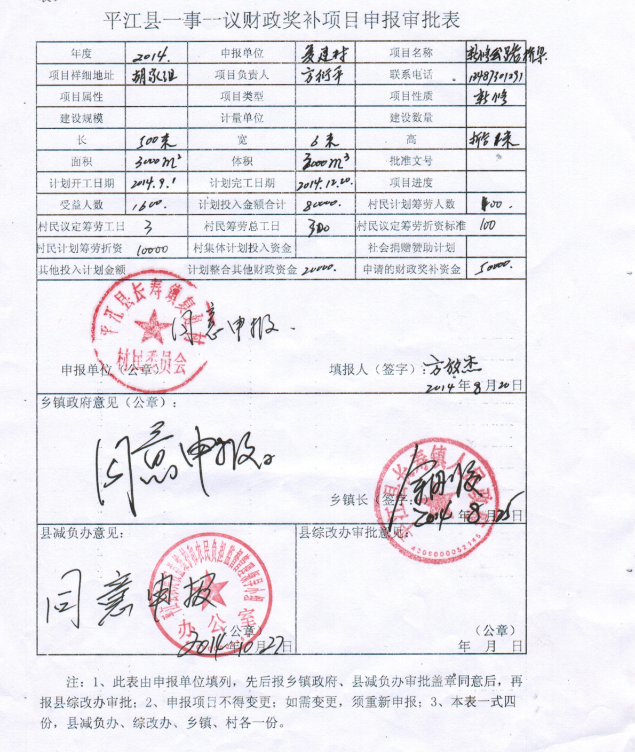 平江县一事一议财政奖补项目申报审批表
年度 2014. 申报单位 项目名称
项目样细地址 胡家组 项目负责人 联系电话
项目属性 项目类型 项目性质 新修
建设规模 计量单位 建设数量
长 500米 宽 6米 高
面积 3000m² 体积 3000m³ 批准文号
计划开工日期 2014.9.1 计划完工日期 2014.12.20. 项目进度
受益人数 1600. 计划投入金额合计 80000. 村民计划筹劳人数 100.
村民议定筹劳工日 3 村民筹劳总工日 300 村民议定筹劳折资标准 100
村民计划筹劳折资 10000 村集体计划投入资金 社会捐赠赞助计划
其他投入计划金额 计划整合其他财政资金 20000. 申请的财政奖补资金 50000.
平江县长寿镇 村
村民委员会
同意申报.
申报单位（公章） 填报人（签字）：方放杰
2014年8月20日
乡镇政府意见（公章）：
同意申报
平江县长寿镇人民政府
乡镇长（签字）
2014年8月25日
4306000052145
县减负办意见： 县综改办审批意见：
同意申报
办公室
（公章） （公章）
2014年10月27日 年 月 日
注：1、此表由申报单位填列，先后报乡镇政府、县减负办审批盖章同意后，再
报县综改办审批；2、申报项目不得变更；如需变更，须重新申报；3、本表一式四
份，县减负办、综改办、乡镇、村各一份。